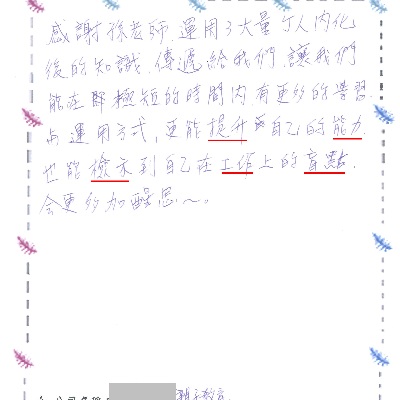 感謝徐老師,運用了大量了人内化
後的知識,傳遞給我們,讓我們
能在即極短的時間内,有更多的學習
与運用方式,更能提升自己的能力,
也能檢示到自己在工作上的盲點,
會更多加醒思~。
親子教育